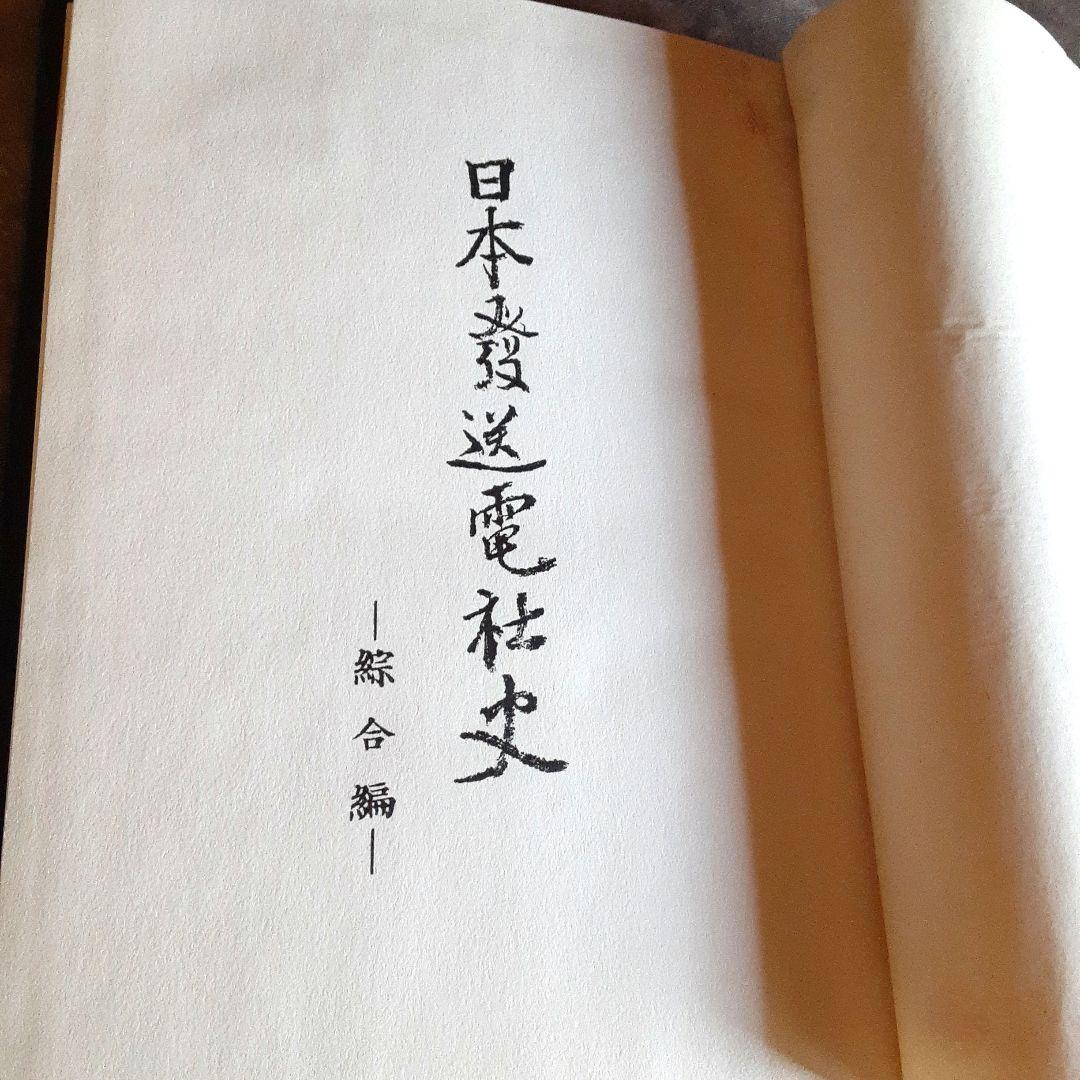 日本發送電社史
―綜合編―